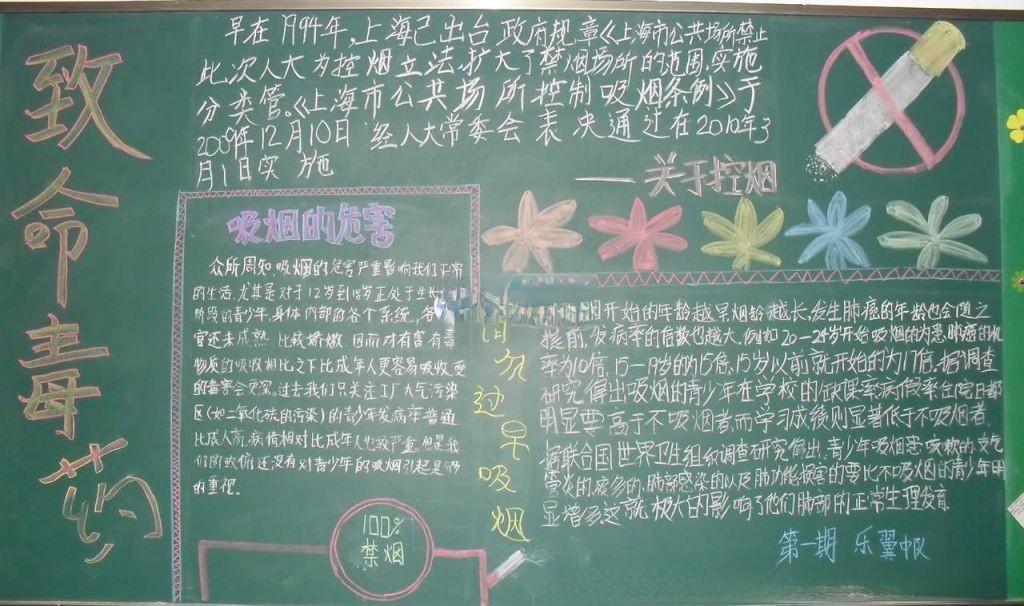 致命毒药
早在1994年,上海已出台政府规章《上海市公共场所禁止
此次人大为控烟立法,扩大了禁烟场所的范围,实施
分类管。《上海市公共场所控制吸烟条例》于
2009年12月10日 经人大常委会表决通过在2010年3
月1日实施
——关于控烟
吸烟的危害
众所周知,吸烟的危害严重影响我们正常
的生活.尤其是对于12岁到18岁正处于生长
阶段的青少年,身体内部的各个系统、各
官还未成熟.比较娇嫩.因而对有害有毒
物质的吸收相比之下比成年人更容易吸收,受
的毒害会更深.过去我们只关注工厂大气污染
区(如二氧化硫的污染)的青少年发病率普遍
比成人高,病情相对比成年人也较严重.但是我
们却还没有对青少年的吸烟引起足够
的重视.
100%
禁烟
请勿过早吸烟
烟开始的年龄越早烟龄越长,发生肺癌的年龄也会随之
提前,发病率的倍数也越大,例如20-24岁开始吸烟的为患肺癌的机
率为10倍,15-19岁的为15倍,15岁以前就开始的为17倍.据调查
研究得出吸烟的青少年在学校的缺课率,病假率,住院日都
明显要高于不吸烟者,而学习成绩则显著低于不吸烟者.
据联合国世界卫生组织调查研究得出,青少年吸烟患咳嗽的,支气
管炎的,肺部感染的以及肺功能损害的要比不吸烟的青少年明
显增多,这就极大的影响了他们肺部的正常生理发育.
第一期 乐翼中队